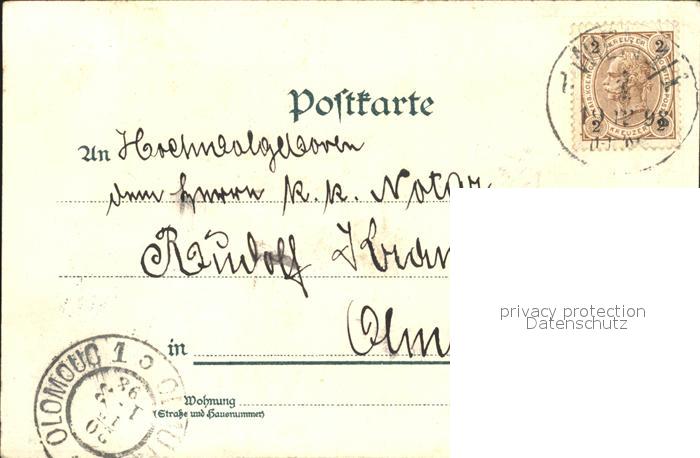 2 KREUZER 2
2 KREUZER 2
Postkarte
An Hochwolgeboren
dem Herrn k. k. Notar
Rudolf
in Olm
OLOMOUC 1
98
Wohnung
(Straße und Hausnummer)
privacy protection
Datenschutz